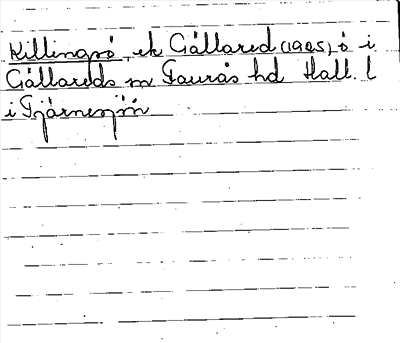 Killingsö, ek Gällared (1925), ö i
Gällareds sn Faurås hd Hall. l
i Tjärnesjön